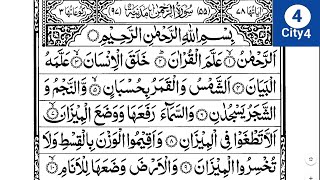 آیاتها ۷۸ (۵۵) سُوْرَةُ الرَّحْمٰنِ مَدَنِيَّةٌ (۹۷) رکوعاتها ۳
بِسْمِ اللهِ الرَّحْمٰنِ الرَّحِيْمِ
اَلرَّحْمٰنُ ۙ عَلَّمَ الْقُرْاٰنَ ؕ خَلَقَ الْاِنْسَانَ ۙ عَلَّمَهُ
الْبَيَانَ ۴ اَلشَّمْسُ وَالْقَمَرُ بِحُسْبَانٍ ۵ وَّالنَّجْمُ وَ
الشَّجَرُ يَسْجُدٰنِ ۶ وَالسَّمَآءَ رَفَعَهَا وَوَضَعَ الْمِيْزَانَ ۷
اَلَّا تَطْغَوْا فِي الْمِيْزَانِ ۸ وَاَقِيْمُوا الْوَزْنَ بِالْقِسْطِ وَلَا
تُخْسِرُوا الْمِيْزَانَ ۹ وَالْاَرْضَ وَضَعَهَا لِلْاَنَامِ ۱۰
4
City4